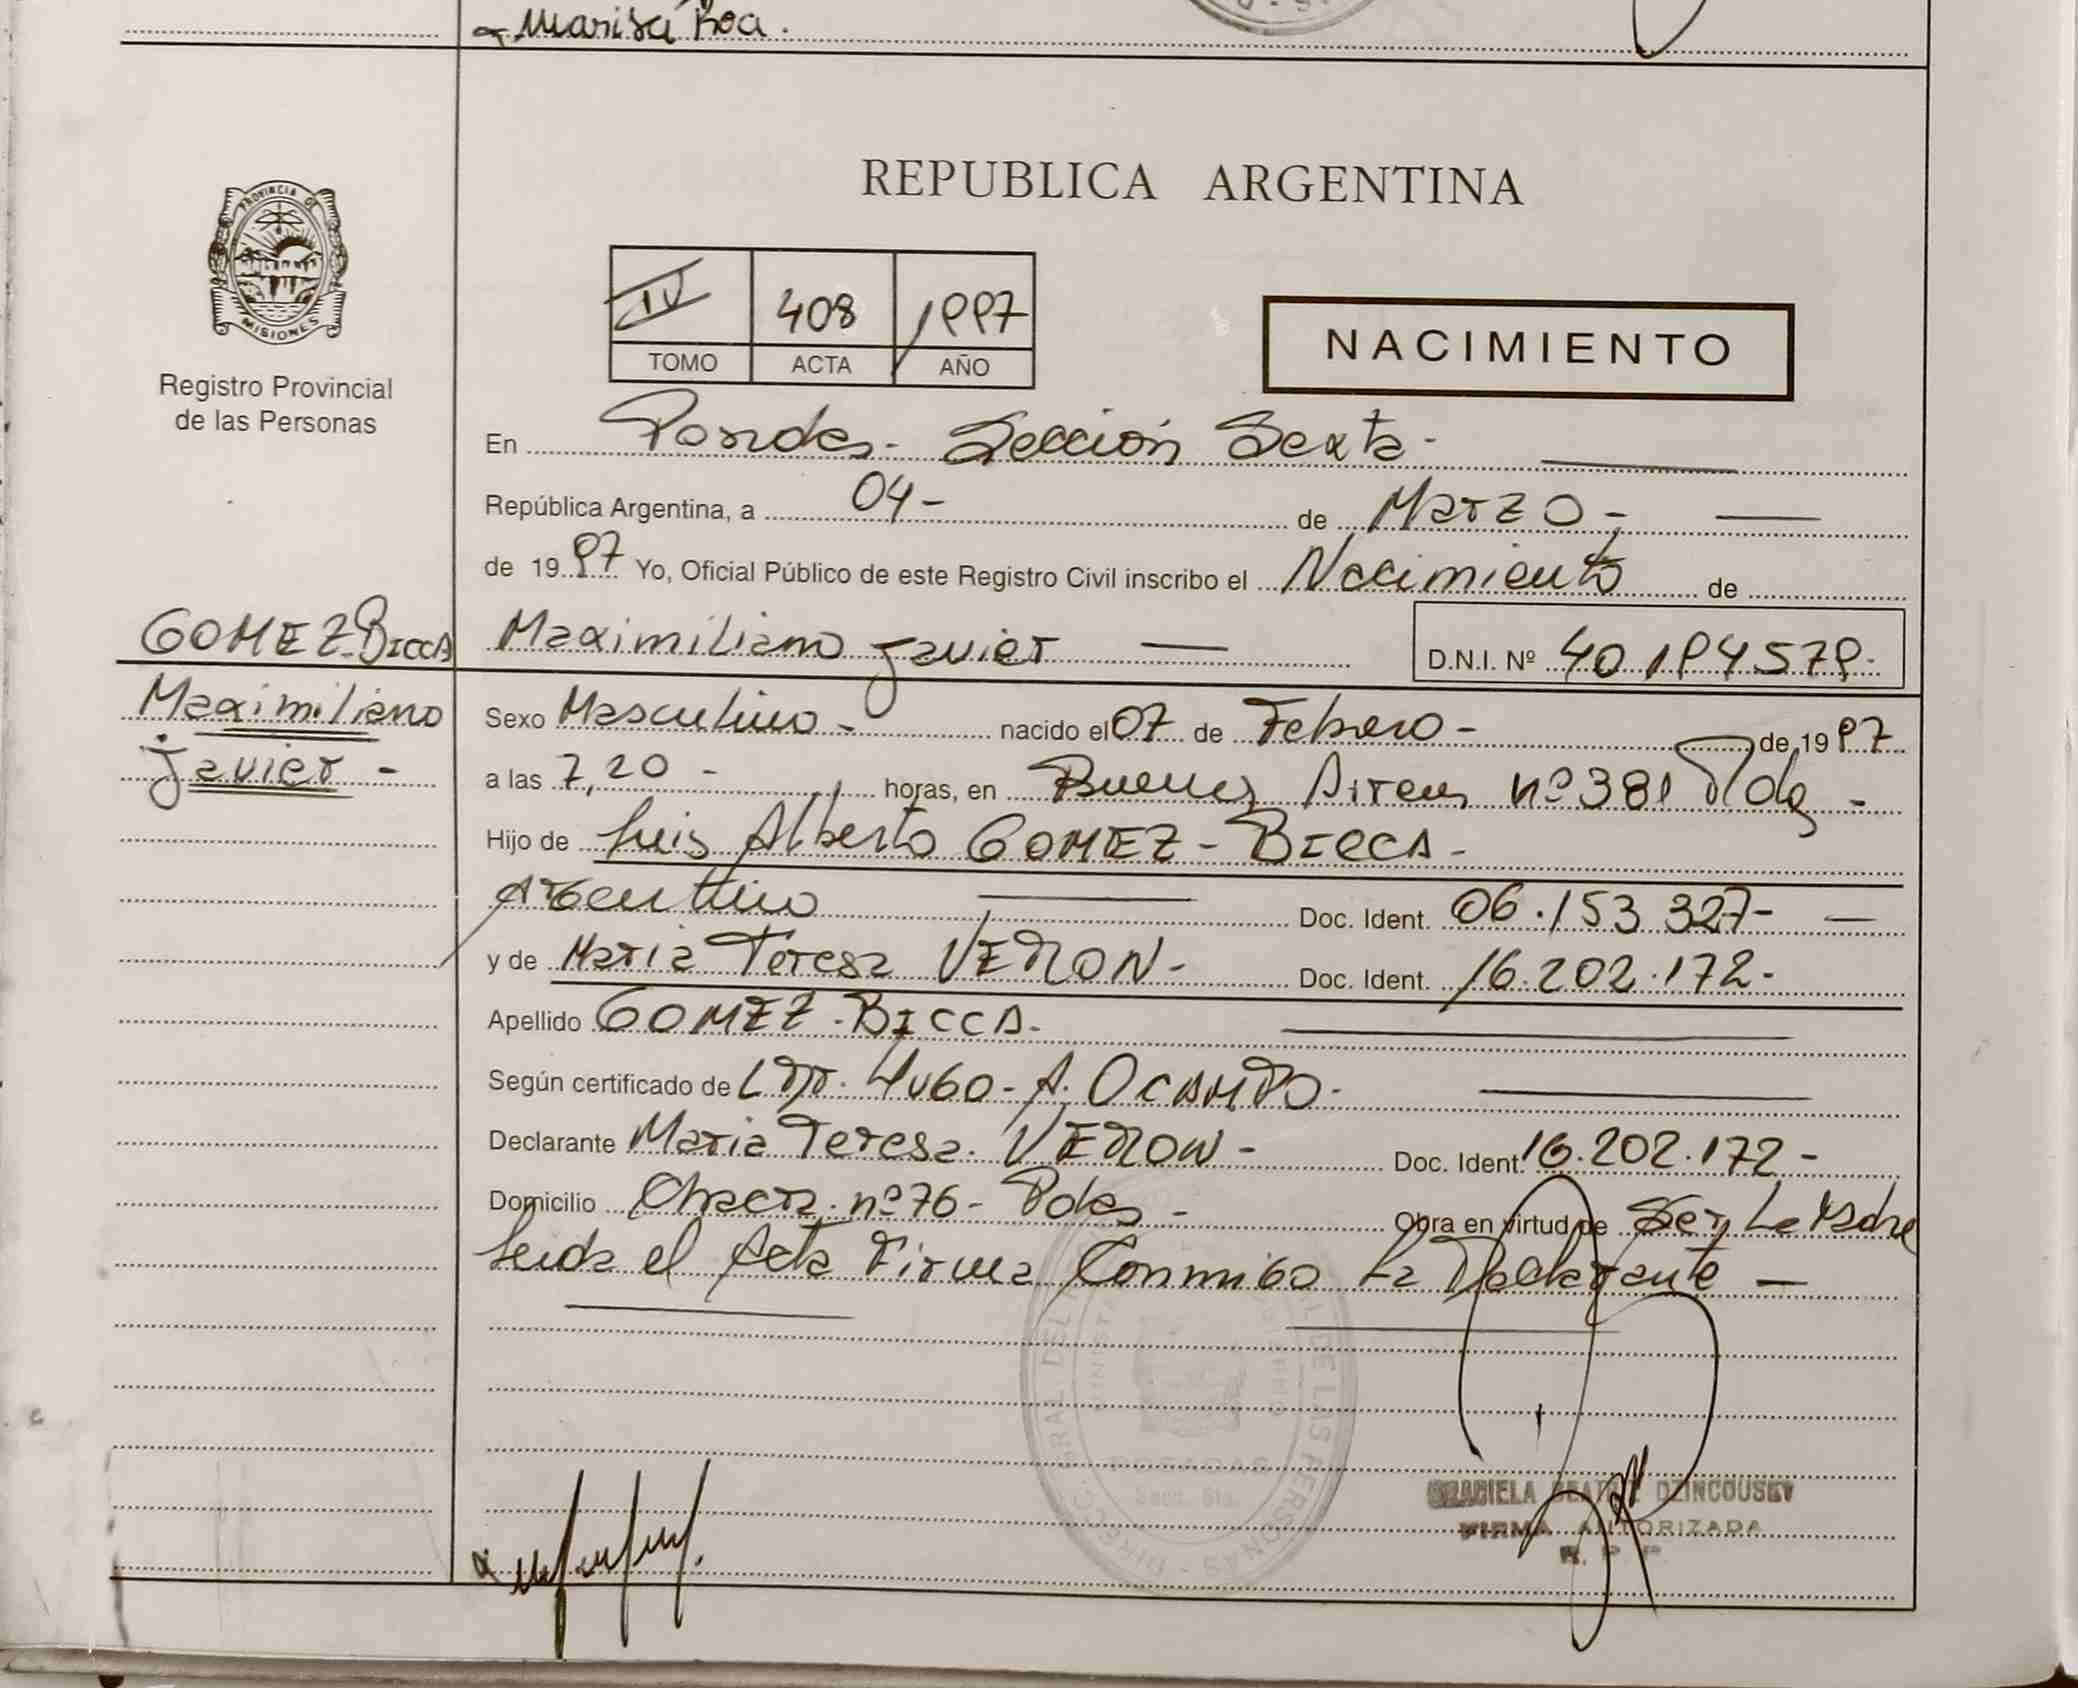 Marisa Roa.
PROVINCIA DE
MISIONES
Registro Provincial
de las Personas
REPUBLICA ARGENTINA
IV 408 1997
TOMO ACTA AÑO
NACIMIENTO
En Posadas - Sección Sexta -
República Argentina, a 04 - de Marzo -
de 1997 Yo, Oficial Público de este Registro Civil inscribo el Nacimiento de
GOMEZ-BICCA
Maximiliano Javier D.N.I. Nº 40.194579.
Maximiliano
Javier -
Sexo Masculino - nacido el 07 de Febrero - de 1997
a las 7,20 - horas, en Buenos Aires nº 381 Pdas -
Hijo de Luis Alberto GOMEZ - BICCA -
Argentino Doc. Ident. 06.153.327 -
y de Maria Teresa VERON - Doc. Ident. 16.202.172 -
Apellido GOMEZ - BICCA.
Según certificado de Dr. Hugo - A. OCAMPO -
Declarante Maria Teresa VERON - Doc. Ident. 16.202.172 -
Domicilio Chacra nº 76 - Pdas - Obra en virtud de Ser La Madre
Leida el Acta Firma Conmigo La Declarante —
POSADAS
Secc. 6ta.
DE LAS PERSONAS - DIRECC. GRAL. DEL
GRACIELA BEATRIZ DZINCOUSKY
FIRMA AUTORIZADA
R. P. P.